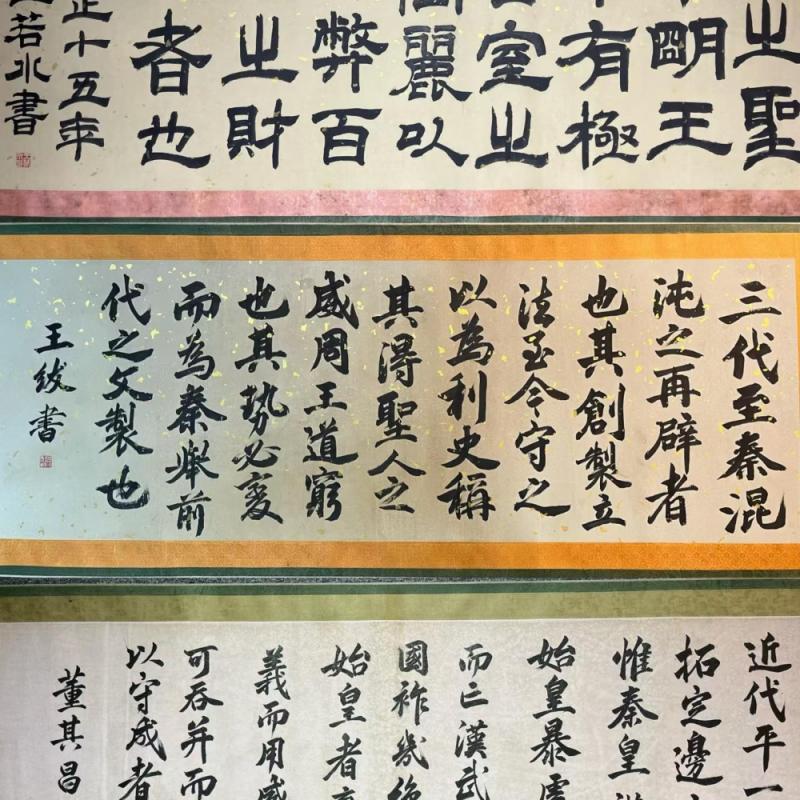 之聖
明王
有極
室之
麗以
弊百
之財
者也
正十五年
若水書
三代至秦混
沌之再辟者
也其創製立
法至今守之
以為利史稱
其得聖人之
威周王道窮
也其勢必變
而為秦舉前
代之文製也
王紱書
近代平一
拓定邊
惟秦皇
始皇暴虐
而亡漢武
國祚幾絶
始皇者
義而用威
可吞并而
以守成者
董其昌